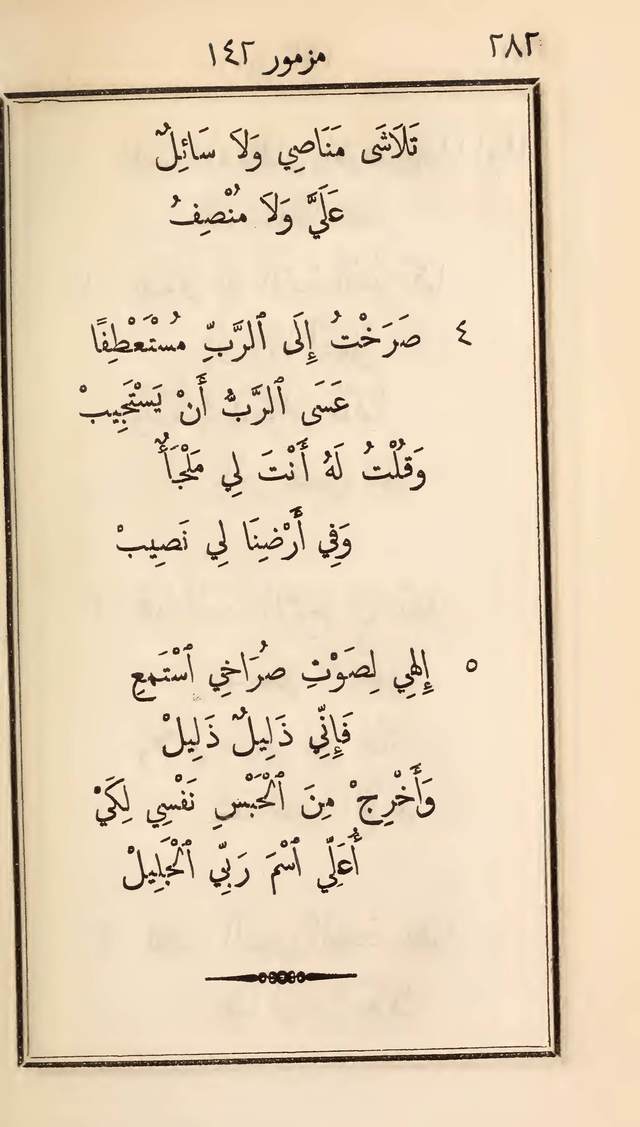 ٢٨٢
مزمور ١٤٢
تَلَاشَى مَنَاصِي وَلاَ سَائِلٌ
عَلَيَّ وَلاَ مُنْصِفُ
٤ صَرَخْتُ إِلَى ٱلرَّبِّ مُسْتَعْطِفًا
عَسَى ٱلرَّبُّ أَنْ يَسْتَجِيبْ
وَقُلْتُ لَهُ أَنْتَ لِي مَلْجَأٌ
وَفِي أَرْضِنَا لِي نَصِيبْ
٥ إِلهِي لِصَوْتِ صُرَاخِي ٱسْتَمِعِ
فَإِنِّي ذَلِيلٌ ذَلِيلْ
وَأَخْرِجْ مِنَ ٱلْحَبْسِ نَفْسِي لِكَيْ
أُعَلِّي ٱسْمَ رَبِّي ٱلْجَلِيلْ